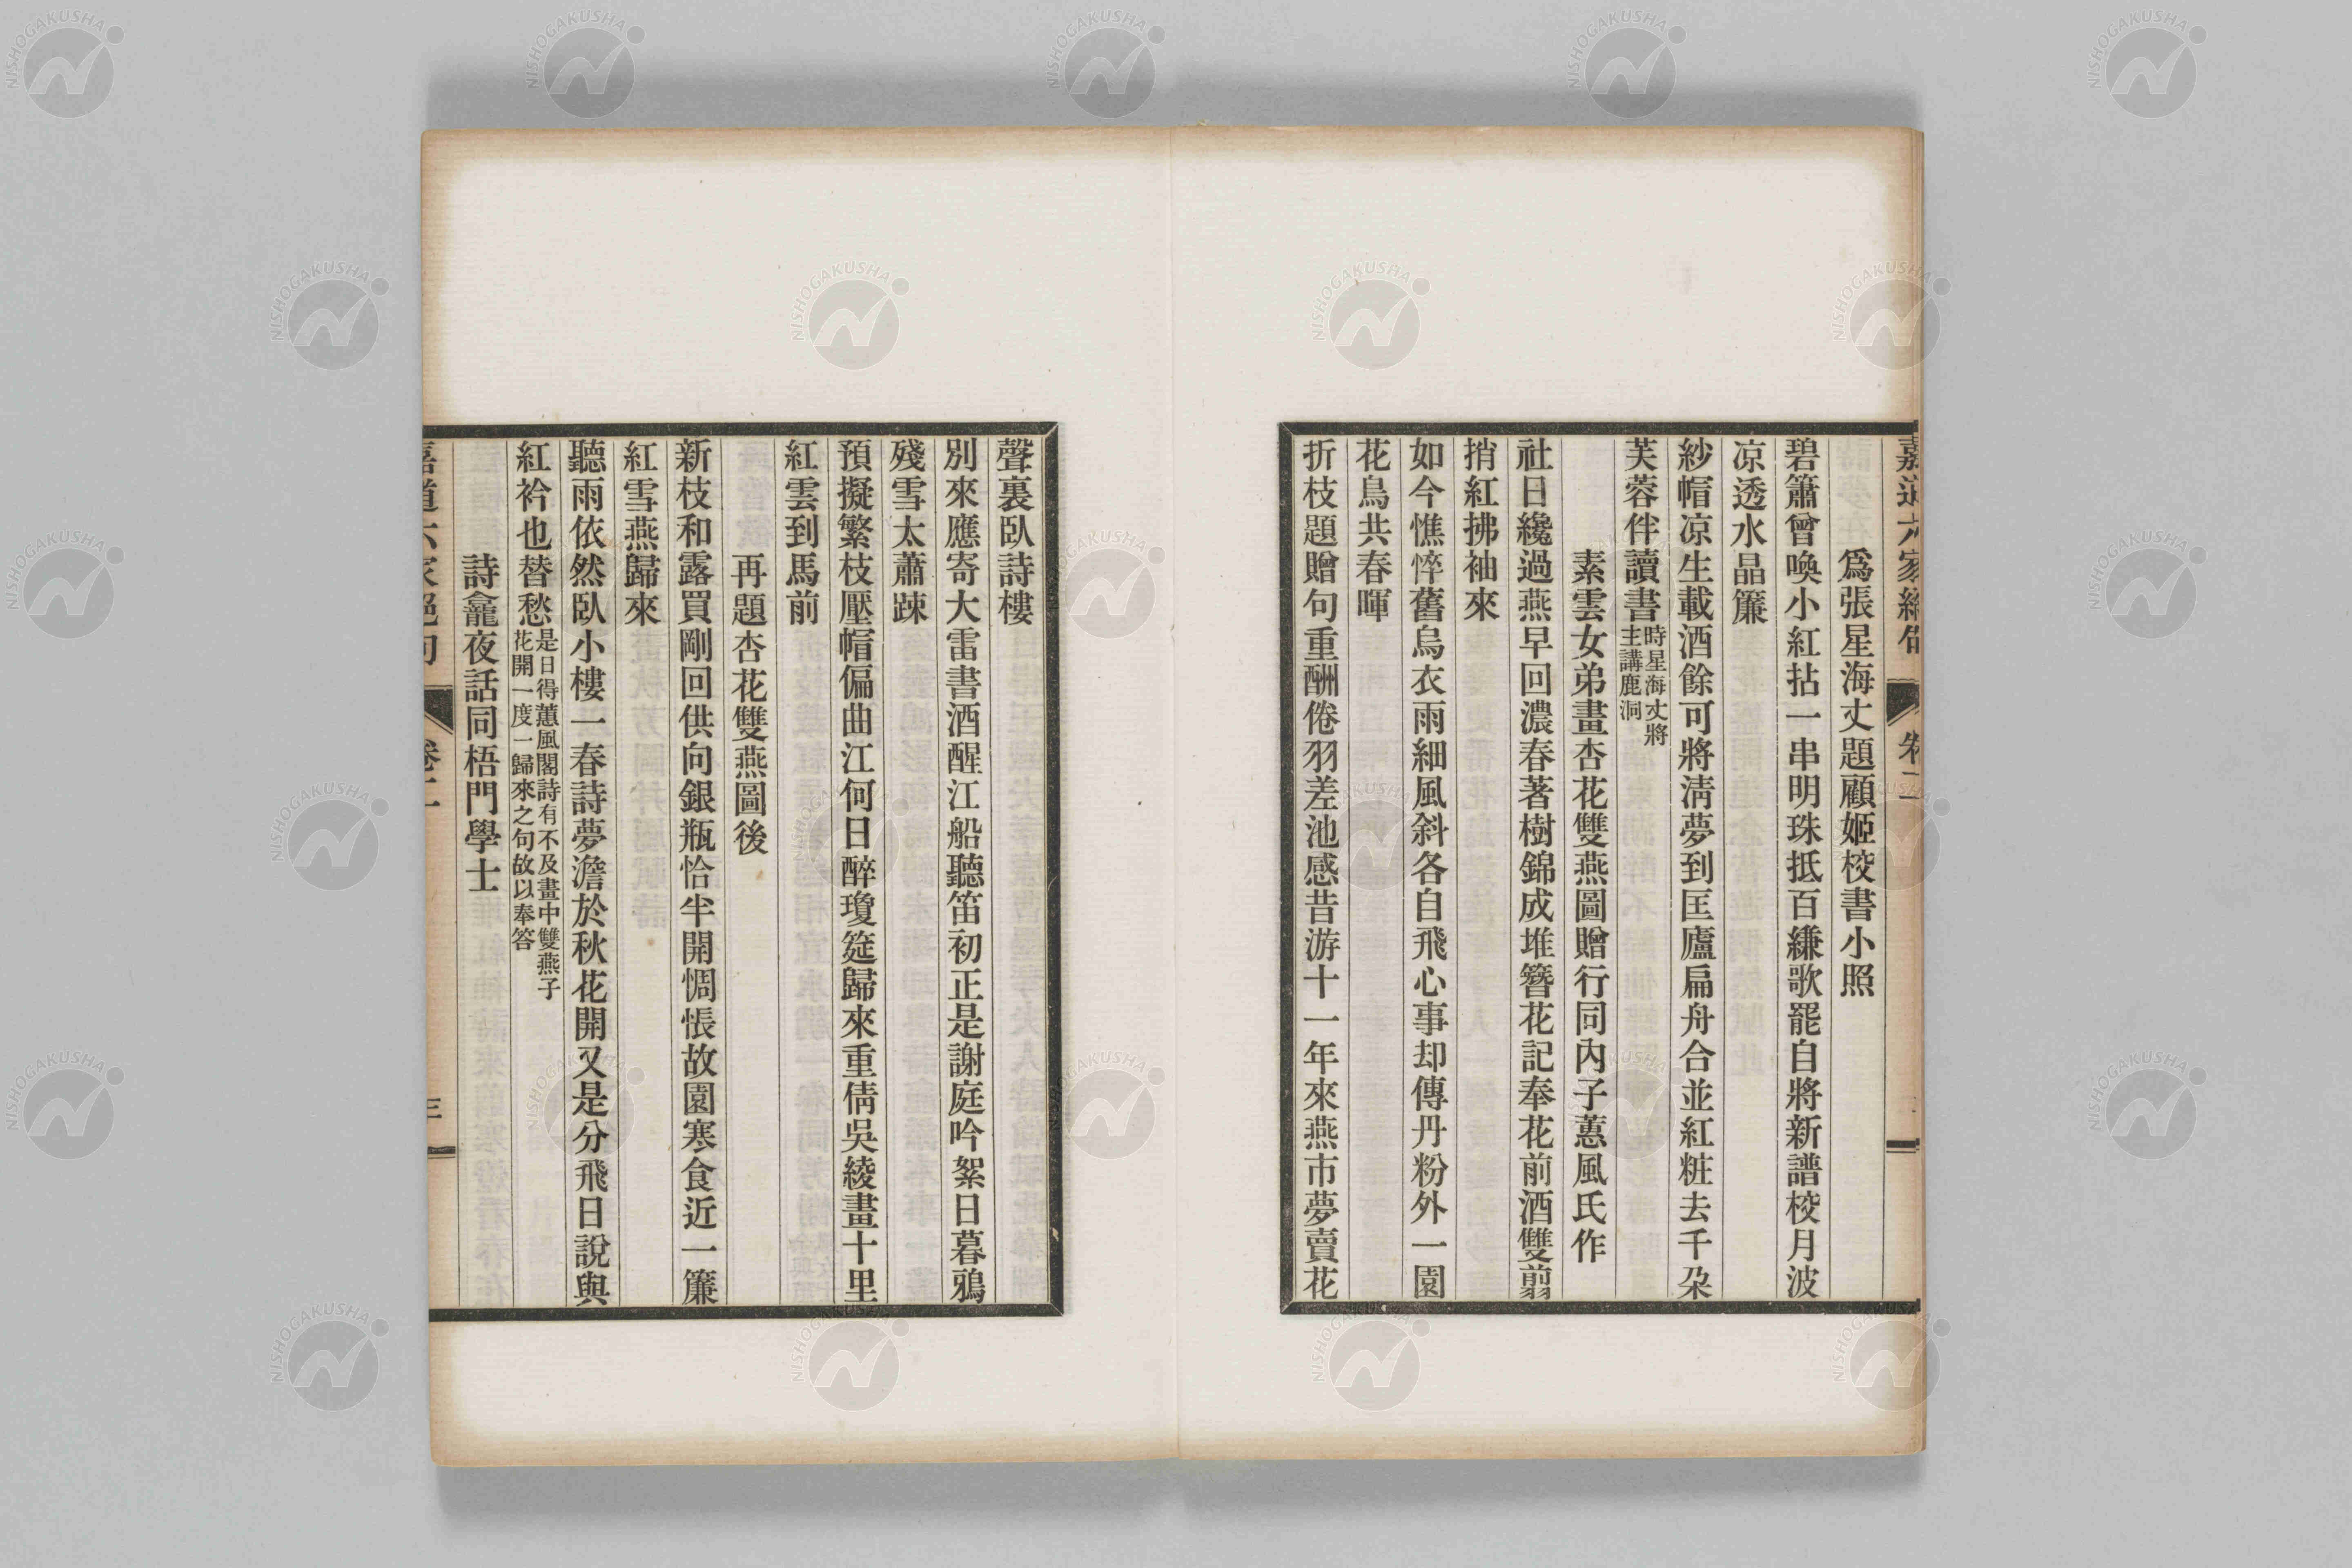 嘉道六家絕句
卷二
爲張星海丈題顧姬校書小照
碧簫曾喚小紅拈一串明珠抵百縑歌罷自將新譜校月波
凉透水晶簾
紗帽凉生載酒餘可將淸夢到匡廬扁舟合並紅粧去千朶
芙蓉伴讀書
時星海丈將
主講鹿洞
素雲女弟畫杏花雙燕圖贈行同內子蕙風氏作
社日纔過燕早回濃春著樹錦成堆簪花記奉花前酒雙翦
捎紅拂袖來
如今憔悴舊烏衣雨細風斜各自飛心事却傳丹粉外一園
花鳥共春暉
折枝題贈句重酬倦羽差池感昔游十一年來燕市夢賣花
聲裏臥詩樓
別來應寄大雷書酒醒江船聽笛初正是謝庭吟絮日暮鴉
殘雪太蕭踈
預擬繁枝壓帽偏曲江何日醉瓊筵歸來重倩吳綾畫十里
紅雲到馬前
再題杏花雙燕圖後
新枝和露買剛回供向銀瓶恰半開惆悵故園寒食近一簾
紅雪燕歸來
聽雨依然臥小樓一春詩夢澹於秋花開又是分飛日說與
紅衿也替愁
是日得蕙風閣詩有不及畫中雙燕子
花開一度一歸來之句故以奉答
詩龕夜話同梧門學士
嘉道六家絕句
卷二
三
NISHOGAKUSHA